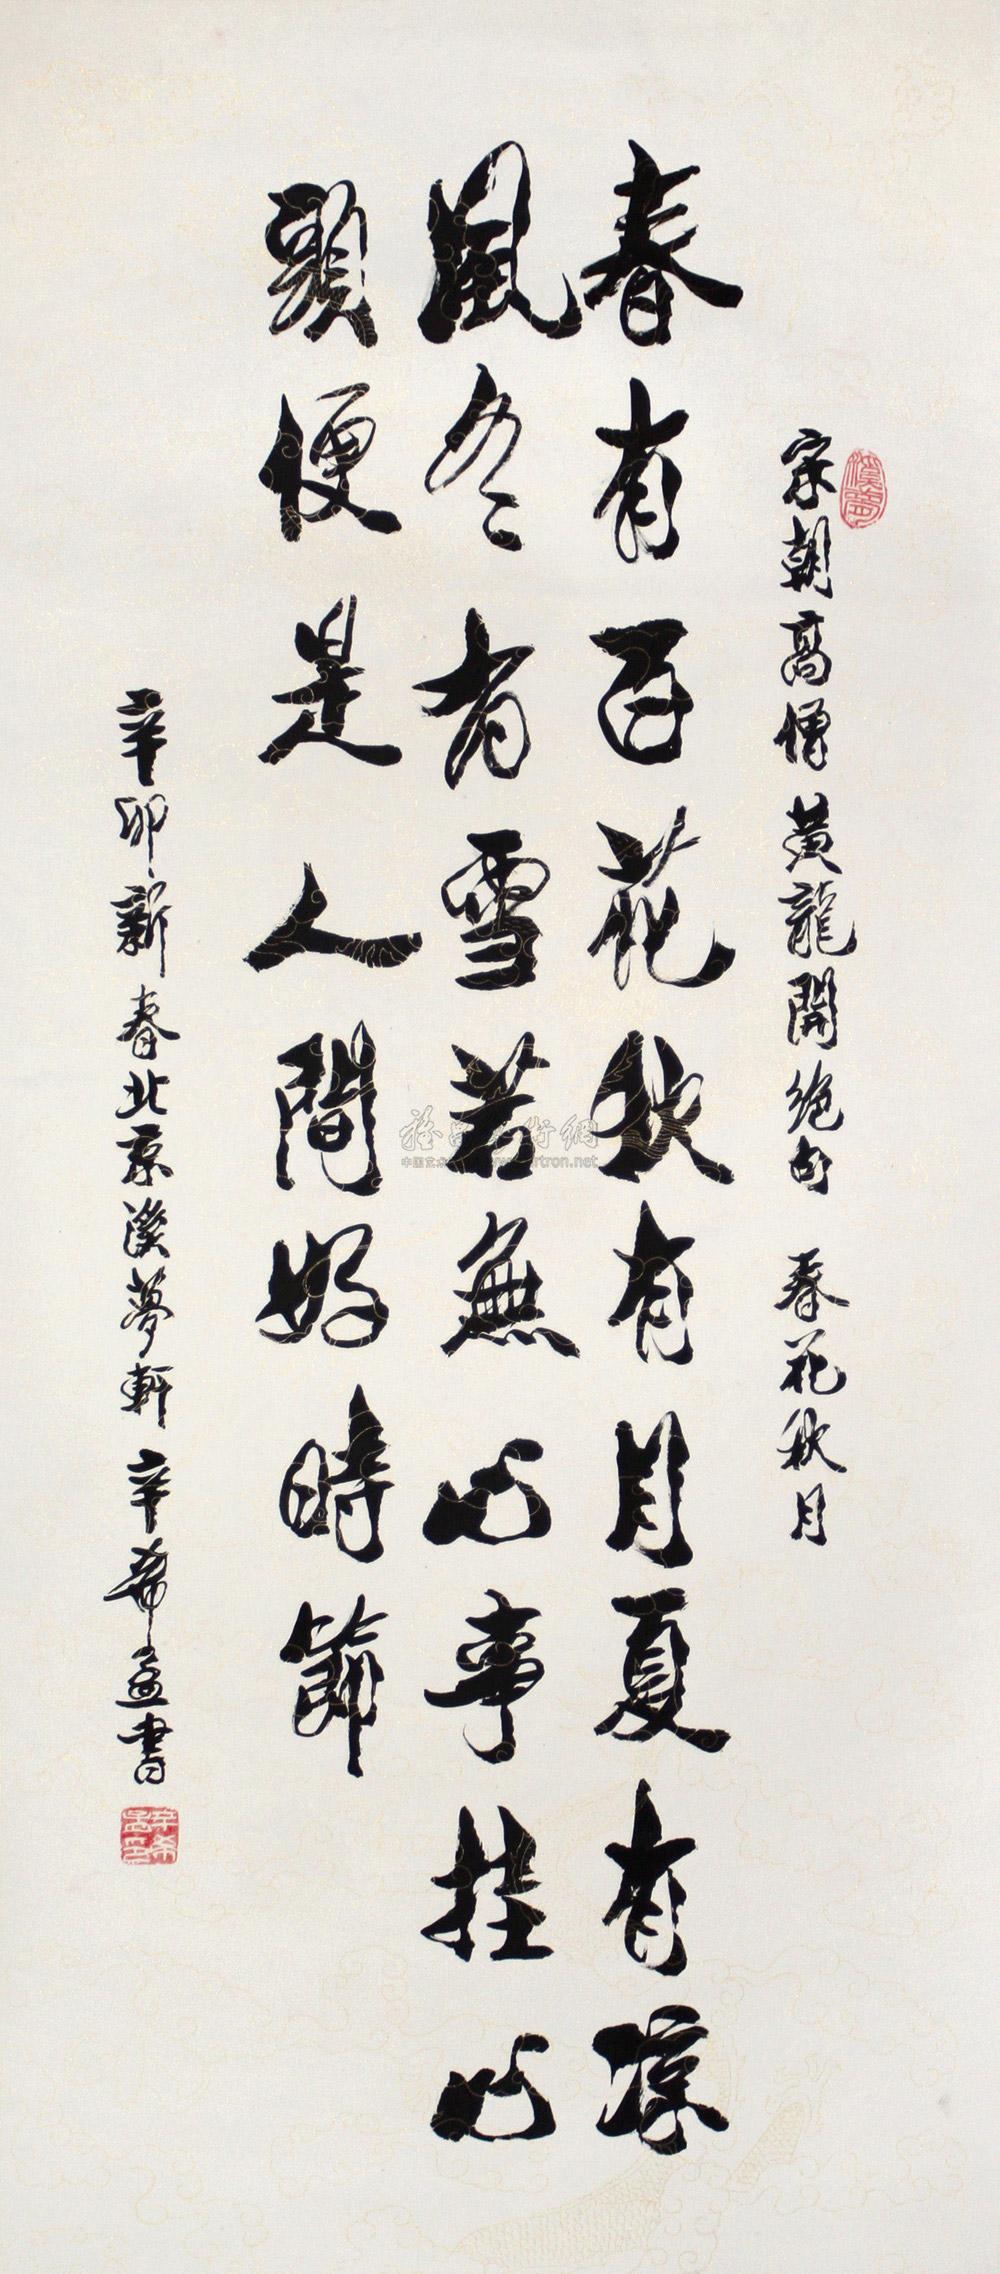 溪夢
宋朝高僧黃龍開絶句 春花秋月
春有百花秋有月夏有涼
風冬有雪若無心事挂心
頭便是人間好時節
辛卯新春北京溪夢軒 辛希孟書
辛希孟印